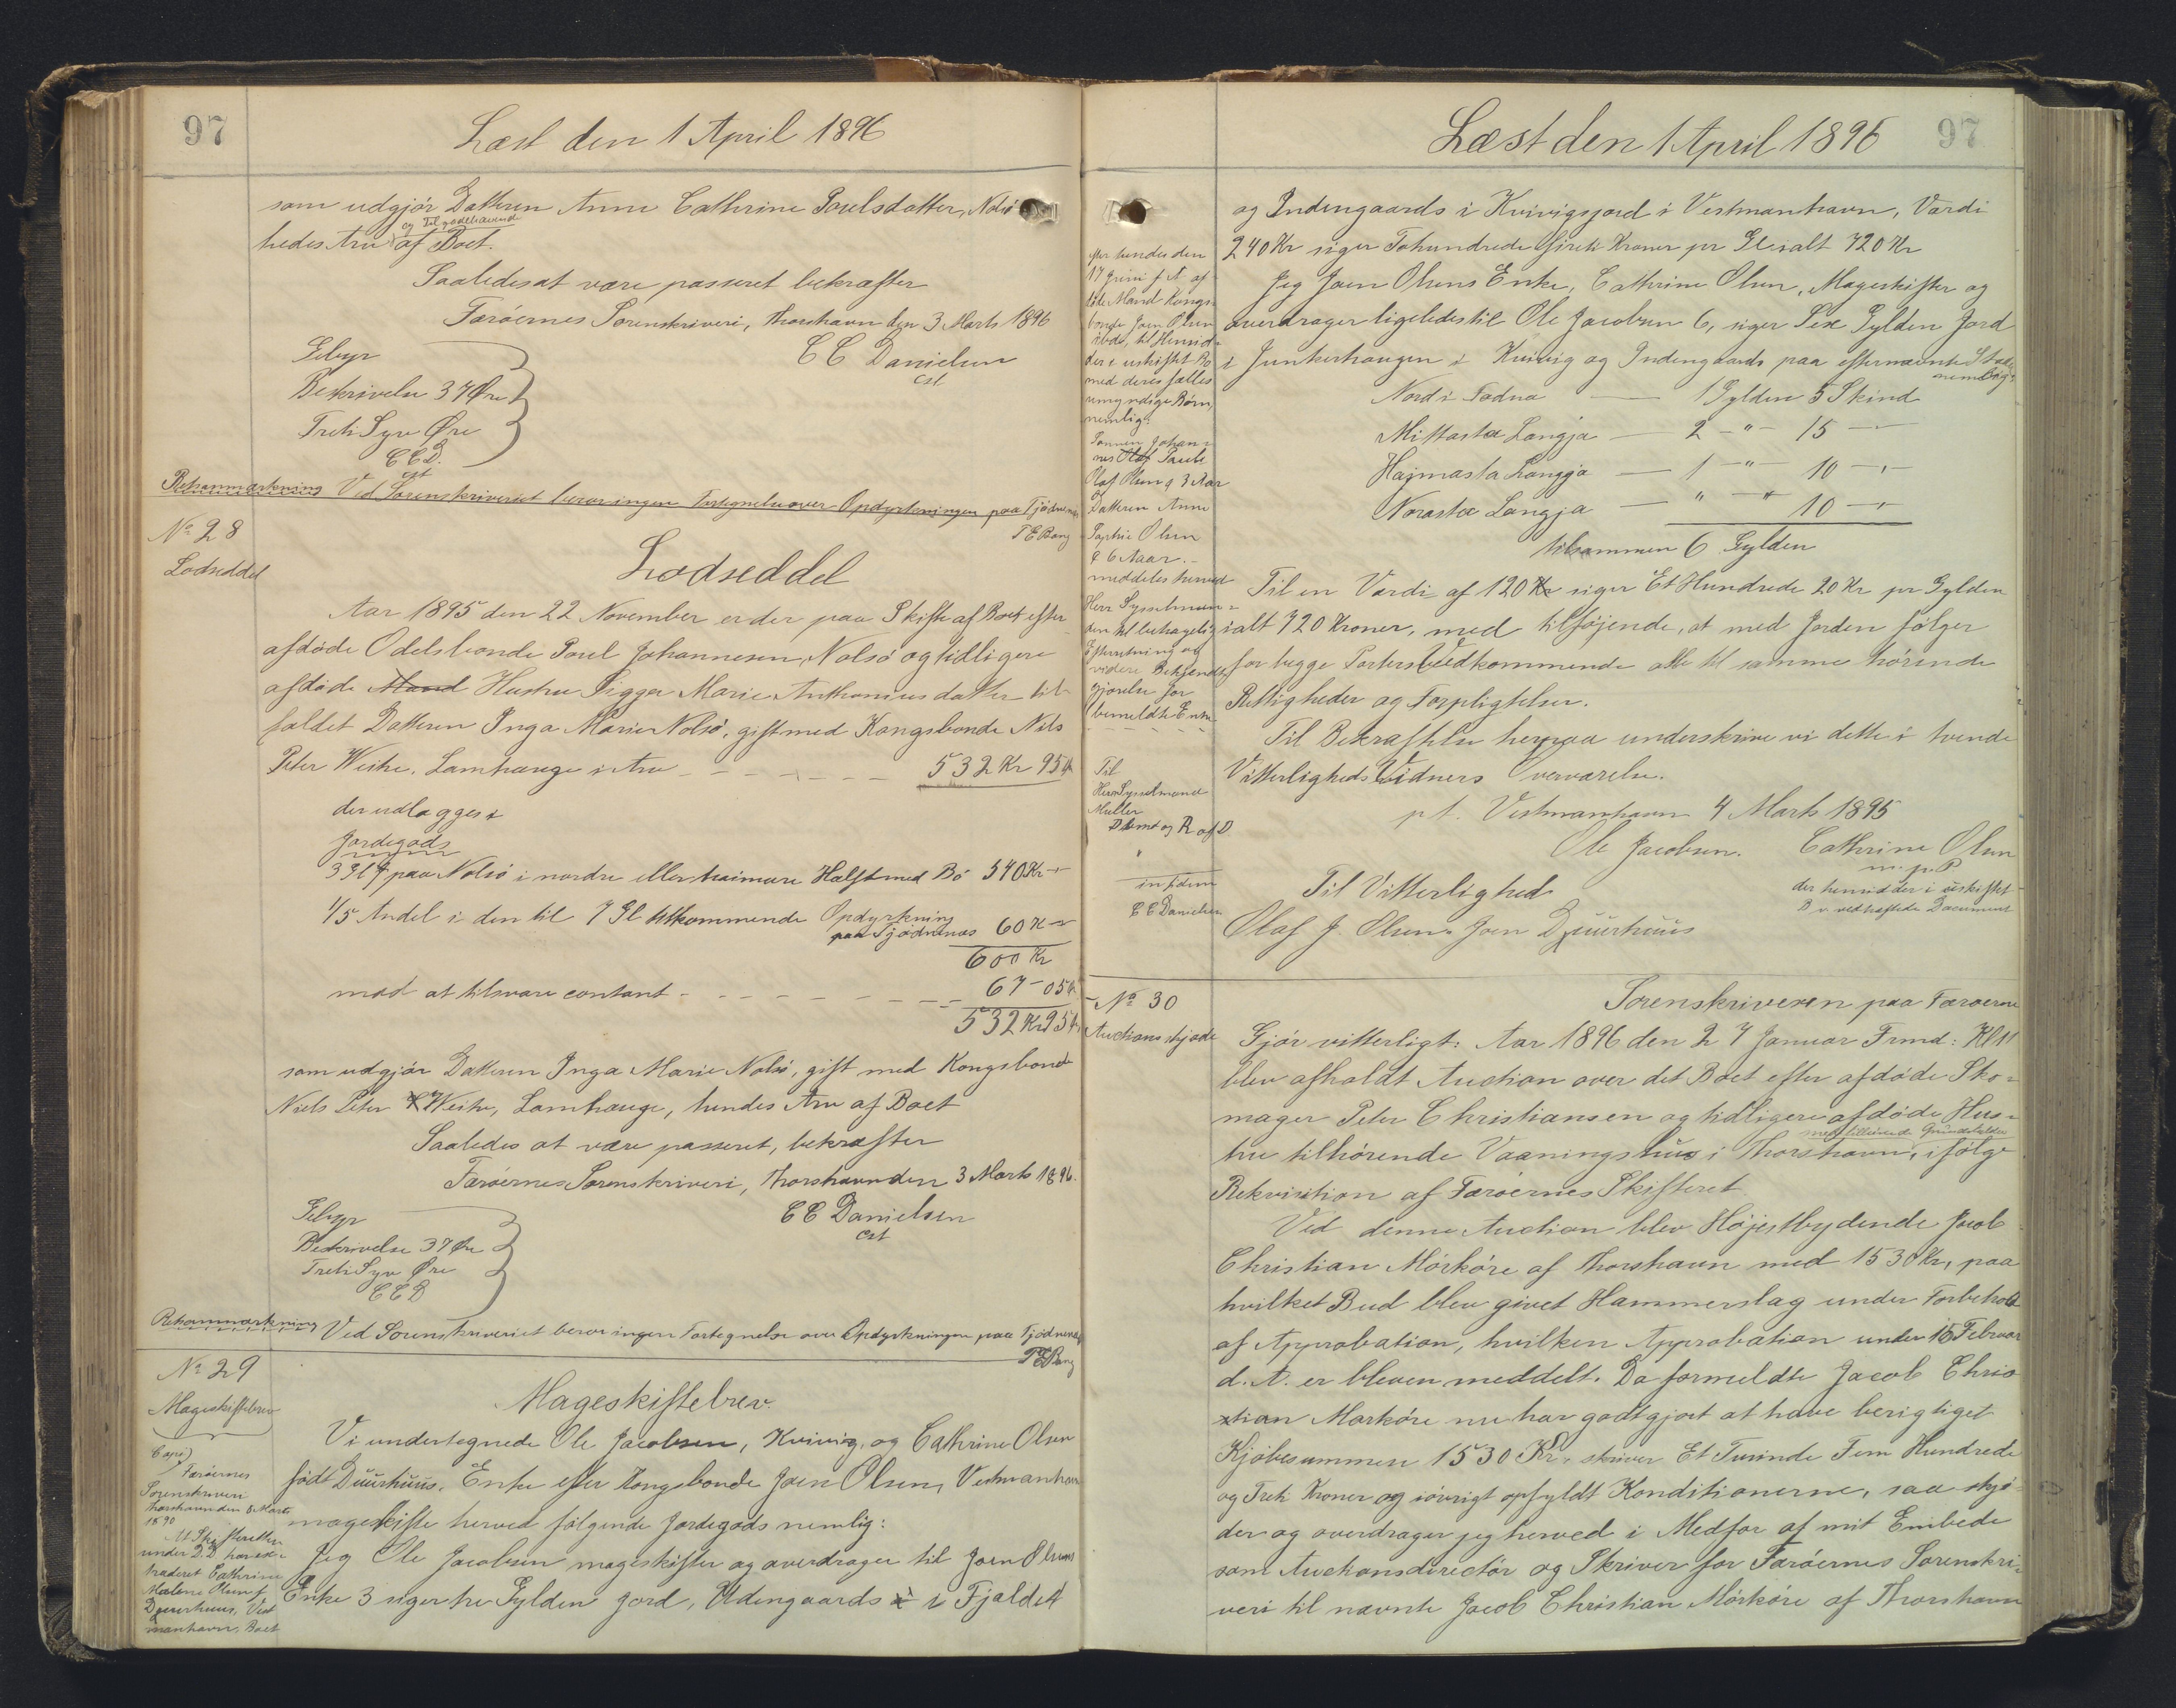 97
Læst den 1 April 1896
som udgjör Datteren Anne Cathrine Poulsdatter, Nolsö
og Tilgodehavende
hedes Arv af Boet.
Saaledes at være passeret bekræfter
Færöernes Sorenskriveri, Thorshavn den 3 Marts 1896
Gebyr
C C Danielsen
cst
Beskrivelse 37 Øre
Treti Syv Øre
C C D.
cst
Retsanmærkning Ved Sorenskriveriet beror ingen Fortegnelse over Opdyrkningen paa Tjödnenes
T E Bang
No 28
Lodseddel
Lodseddel
Aar 1895 den 22 November er der paa Skifte af Boet efter
afdöde Odelsbonde Poul Johannesen, Nolsö og tidligere
afdöde Mand Hustru Sigga Marie Anthoniusdatter til-
faldet Datteren Inga Marie Nolsö, gift med Kongsbonde Niels
Peter Weihe, Lamhauge i Arv 532 Kr 95
der udlægges i
Jordegods
3 Gl 4 paa Nolsö i nordre eller haimare Halft med Bö 540 Kr
1/5 Andel i den til 7 Gl tilkommende Opdyrkning
paa Tjødnenes 60 K
600 Kr
mod at tilsvare contant 67-05
532 Kr 95
som udgjör Datteren Inga Marie Nolsö, gift med Kongsbonde
Niels Peter Weihe, Lamhauge, hendes Arv af Boet
Saaledes at være passeret, bekræfter
Færöernes Sorenskriveri, Thorshavn den 3 Marts 1896.
Gebyr
C C Danielsen
cst
Beskrivelse 37 Øre
Treti Syv Øre
C C D
Retsanmærkning Ved Sorenskriveriet beror ingen Fortegnelse over Opdyrkningen paa Tjødnenes
T E Bang
No 29
Mageskiftebrev
Mageskiftebrev.
Vi undertegnede Ole Jacobsen, Kvivig, og Cathrine Olsen
född Duurhuus, Enke efter Kongsbonde Joen Olsen, Vestmanhavn
mageskifte herved fölgende Jordegods nemlig:
Jeg Ole Jacobsen mageskifter og overdrager til Joen Olsens
Enke 3 siger tre Gylden Jord, Udengaards i Fjaldet
Copi
Færöernes
Sorenskriveri
Thorshavn den 8 Marts
1890
At Skifteretten
under D.D har ex-
traderet Cathrine
Malene Olsen f
Duurhuus, Vest
manhavn, Boet
97
Læst den 1 April 1896
efter hendes den
17 Juni f. A. af-
döde Mand Kongs-
bonde Joen Olsen
ibds, til Hensid-
den i uskiftet Bo
med deres fælles
umyndige Börn,
nemlig:
Sönnen Johan-
nes Olaf Paule
Olaf Olsen 3 Aar
Datteren Anne
Sophie Olsen
6 Aar.
meddeles herved
Herr Sysselman-
den til behagelig
Efterretning og
videre Bekjendt-
gjörelse for
bemeldte Enke
Til
Herr Sysselmand
Müller
Dbmd og R af D
in fidem
C C Danielsen
og Indengaards i Kvivigsjord i Vestmanhavn, Værdi
240 Kr siger Tohundrede Fireti Kroner pr Gl ialt 720 Kr
Jeg Joen Olsens Enke, Cathrine Olsen, Mageskifter og
overdrager ligeledes til Ole Jacobsen 6, siger Sex Gylden Jord
i Junkerhaugen i Kvivig og Indengaards paa efternævnte Steder
nemlig:
Nord i Fødna — 1 Gylden 5 Skind
Mittasta Langja — 2 - " - 15 - "
Hajmasta Langja — 1 - " - 10 - "
Norasta Langja — " - " 10 - "
tilsammen 6 Gylden
Til en Værdi af 120 Kr siger Et Hundrede 20 Kr pr Gylden
ialt 720 Kroner, med tilföjende, at med Jorden fölger
for begge Parters Vedkommende alle til samme hörende
Rettigheder og Forpligtelser.
Til Bekræftelse herpaa underskrive vi dette i tvende
Vitterligheds Vidners Overværelse.
p t. Vestmanhavn 4 Marts 1895
Ole Jacobsen. Cathrine Olsen
m. p. P
Til Vitterlighed
der hensidder i uskiftet
B v. vedhæftede Document
Olaf J. Olsen. Joen Duurhuus
No 30
Auctionsskjøde
Sorenskriveren paa Færoerne
Gjör vitterligt: Aar 1896 den 27 Januar Frmd: Kl 11
blev afholdt Auction over det Boet efter afdöde Sko-
mager Peter Christiansen og tidligere afdöde Hus-
med tilliende Grundstykke
tru tilhörende Vaaningshus i Thorshavn, ifölge
Rekvisition af Færöernes Skifteret
Ved denne Auction blev Höjestbydende Jacob
Christian Mörköre af Thorshavn med 1530 Kr, paa
hvilket Bud blev givet Hammerslag under Forbehold
af Approbation, hvilken Approbation under 15 Februar
d. A. er bleven meddelt. Da formeldte Jacob Chris
tian Mörköre nu har godtgjort at have berigtiget
Kjöbesummen 1530 Kr, skriver Et Tusinde Fem Hundrede
og Treti Kroner og iövrigt opfyldt Konditionerne, saa skjö-
der og overdrager jeg herved i Medfør af mit Embede
som Auctionsdirectör og Skriver for Færöernes Sorenskri-
veri til nævnte Jacob Christian Mörköre af Thorshavn